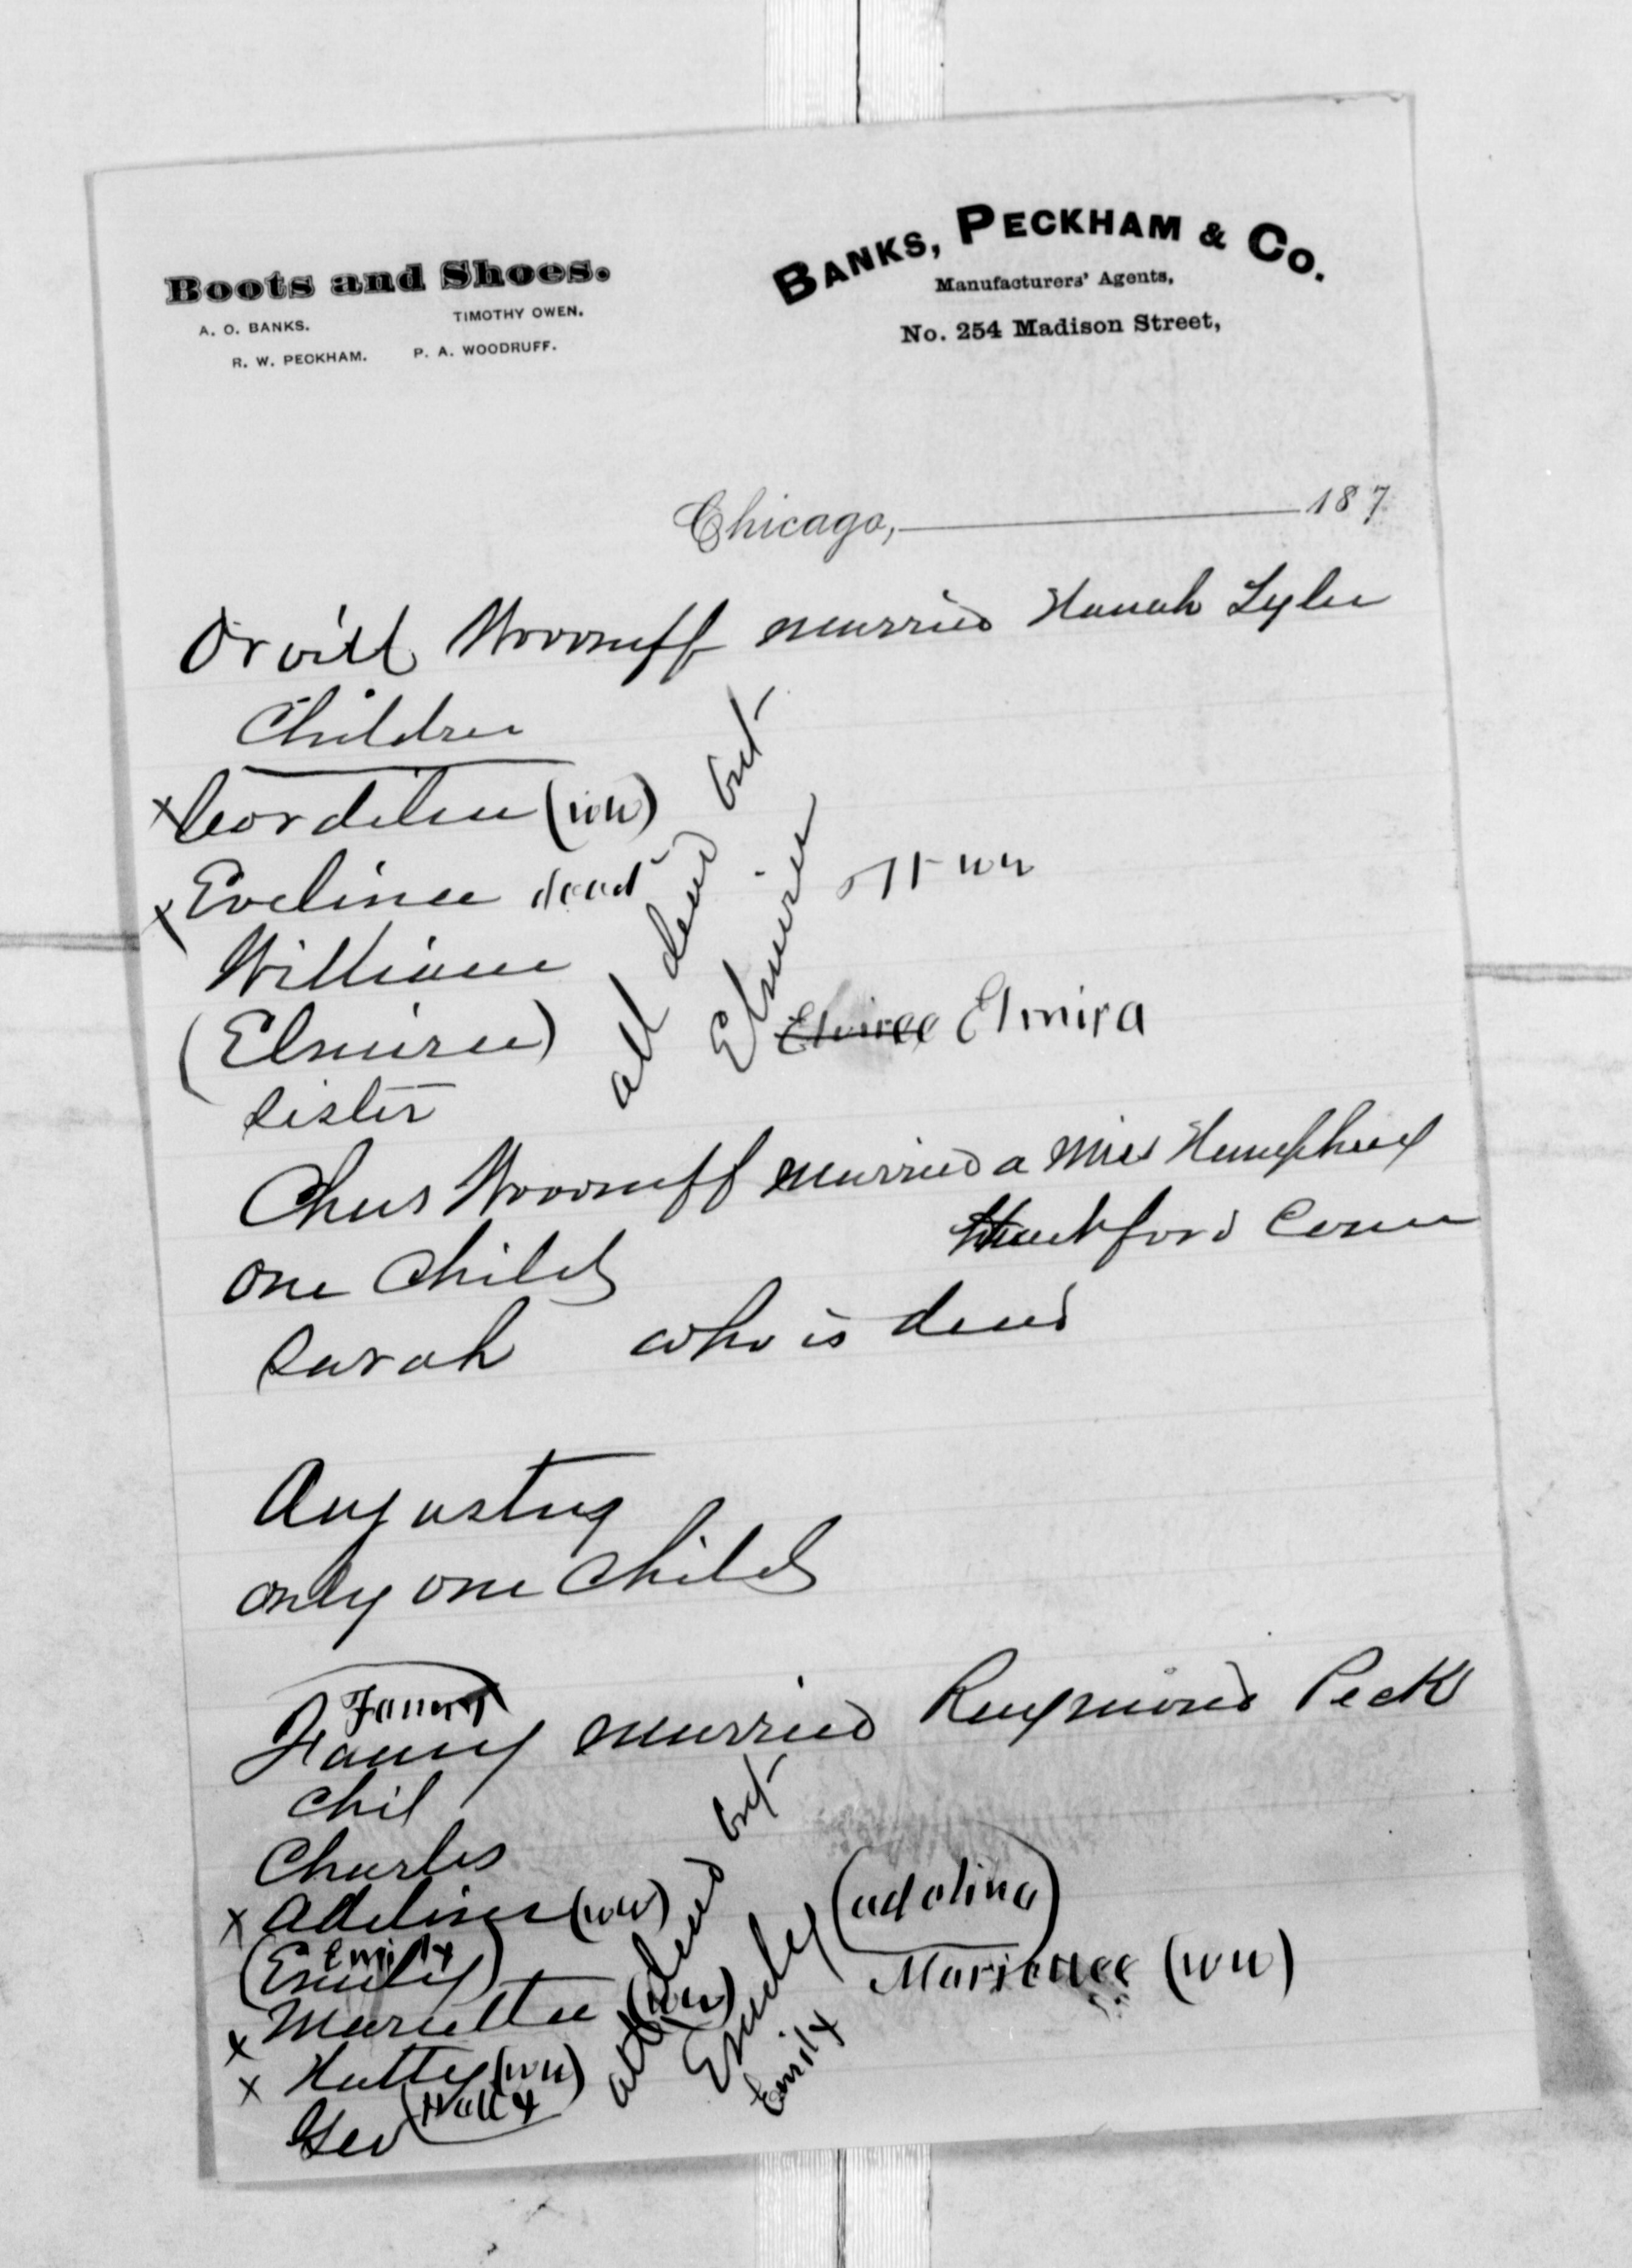 Boots and Shoes.
A. O. BANKS. TIMOTHY OWEN.
R. W. PECKHAM. P. A. WOODRUFF.
BANKS, PECKHAM & CO.
Manufacturers' Agents,
No. 254 Madison Street,
Chicago, 187
Orvill Woodruff married Hanah Tyler
Children
x Cordelia (wu)
x Evelinea dead
William
(Elmira)
sister
all dead but
Elmira
Elmira
Chas Woodruff married a Miss Humphrey
Hartford Conn
one Child
Sarah who is dead
Augustus
only one Child
Fanny
Fanny married Raymond Peck
Chil
Charles
x Adeline (wu)
(Emily) Emily
x Marietta (wu)
x Hatty (wu)
Geo (Hatty
all dead but
Emily
Emily
(adelina)
(wu)